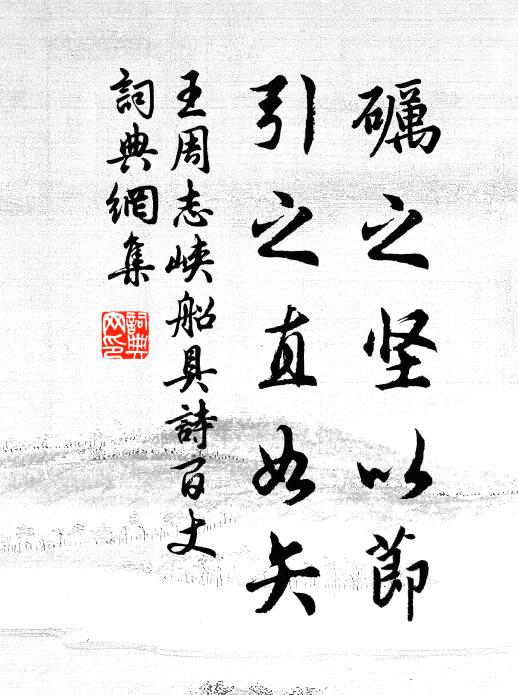 礪之坚以節
引之直如矢
王周志峽船具詩百丈
詞典網集
詞典
文印